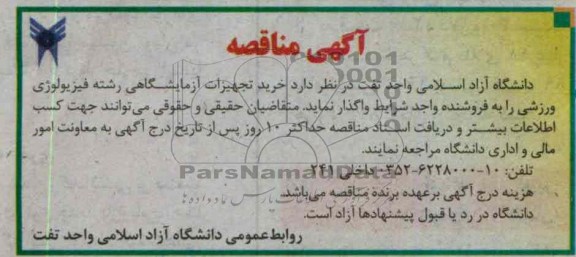 آگهی مناقصه
دانشگاه آزاد اسلامی واحد تفت در نظر دارد خرید تجهیزات آزمایشگاهی رشته فیزیولوژی
ورزشی را به فروشنده واجد شرایط واگذار نماید. متقاضیان حقیقی و حقوقی می‌توانند جهت کسب
اطلاعات بیشتر و دریافت اسناد مناقصه حداکثر ۱۰ روز پس از تاریخ درج آگهی به معاونت امور
مالی و اداری دانشگاه مراجعه نمایند.
تلفن: ۱۰-۶۲۲۸۰۰۰-۳۵۲ داخلی ۲۴۱
ParsNamadData
هزینه درج آگهی برعهده برنده مناقصه می‌باشد.
دانشگاه در رد یا قبول پیشنهادها آزاد است.
روابط عمومی دانشگاه آزاد اسلامی واحد تفت